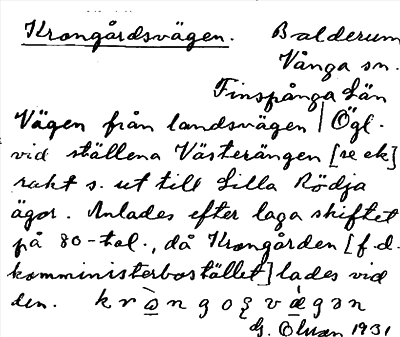 Krongårdsvägen. Balderum
Vånga sn.
Finspånga Län
Vägen från landsvägen | Ögl.
vid ställena Västerängen [se ek]
rakt s. ut till Lilla Rödja
ägor. Anlades efter laga skiftet
på 80-tal., då Krongården [f.d.
komministerbostället] lades vid
den.
G. Olson 1931